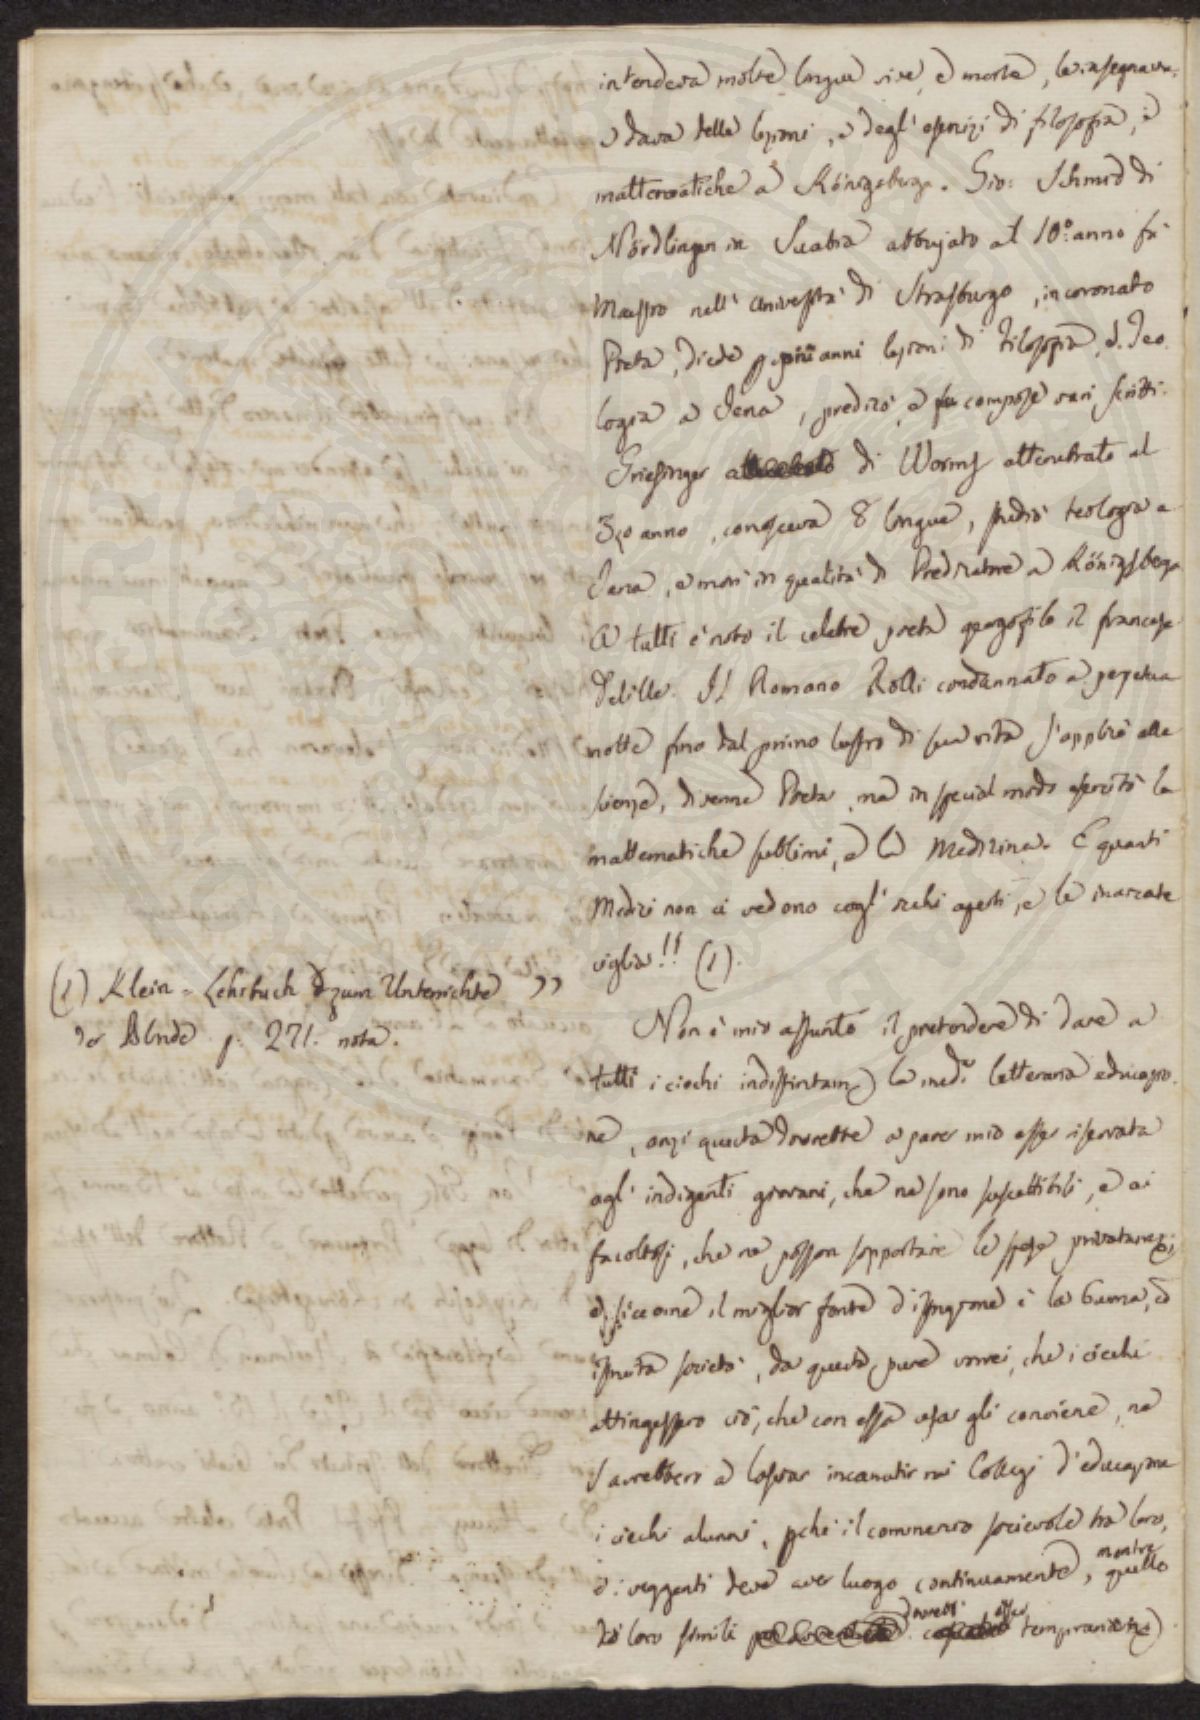 intendeva molte lingue vive, e morte, le insegnava,
e dava delle lezioni, e degl' esercizi di filosofia, e
mattematiche a Königsberga. Gio: Schmid di
Nördlingen in Suabia abbujato al 10.° anno fù
Maestro nell' Università di Strasburgo, incoronato
Poeta, diede p più anni lezioni di Filosofia, d. Teo
logia a Jena, predicò, e compose varj scritti.
Griesinger di Worms ottenebrato al
3.zo anno, conosceva 8 lingue, studiò teologia a
Jena, e morì in qualità di Predicatore a Königsberga
A tutti è noto il celebre poeta geografilo il francese
Delille. Il Romano Rolli condannato a perpetua
notte fino dal primo lustro di sua vita s'applicò alle
scienze, divenne Poeta, ma in special modo esercitò la
mattematiche sublimi, e la Medicina. E quanti
Medici non ci vedono cogl' occhi aperti, e le inarcate
ciglia!! (1).
(1) Klein = Lehrbuch zum Unterrichte
der Blinde p. 271. nota.
Non è mio assunto il pretendere di dare a
tutti i ciechi indistintam.e la med.a letteraria educazio
ne, anzi questa dovrebbe a parer mio esser riservata
agl' indigenti giovani, che ne sono suscettibili, e ai
facoltosi, che ne posson sopportare le spese privatame;
e siccome il miglior fonte d'istruzione è la buona, ed
istruita società, da questa pure vorrei, che i ciechi
attingessero ciò, che con essa usar gli conviene, ne
s'avrebbero a lasciar incanutir nei Collegi d'educazione
i ciechi alunni, pchè il commercio socievole tra loro,
e i veggenti deve aver luogo continuamente, mentre quello
dei loro simili dovrebb' esser temprariam.e